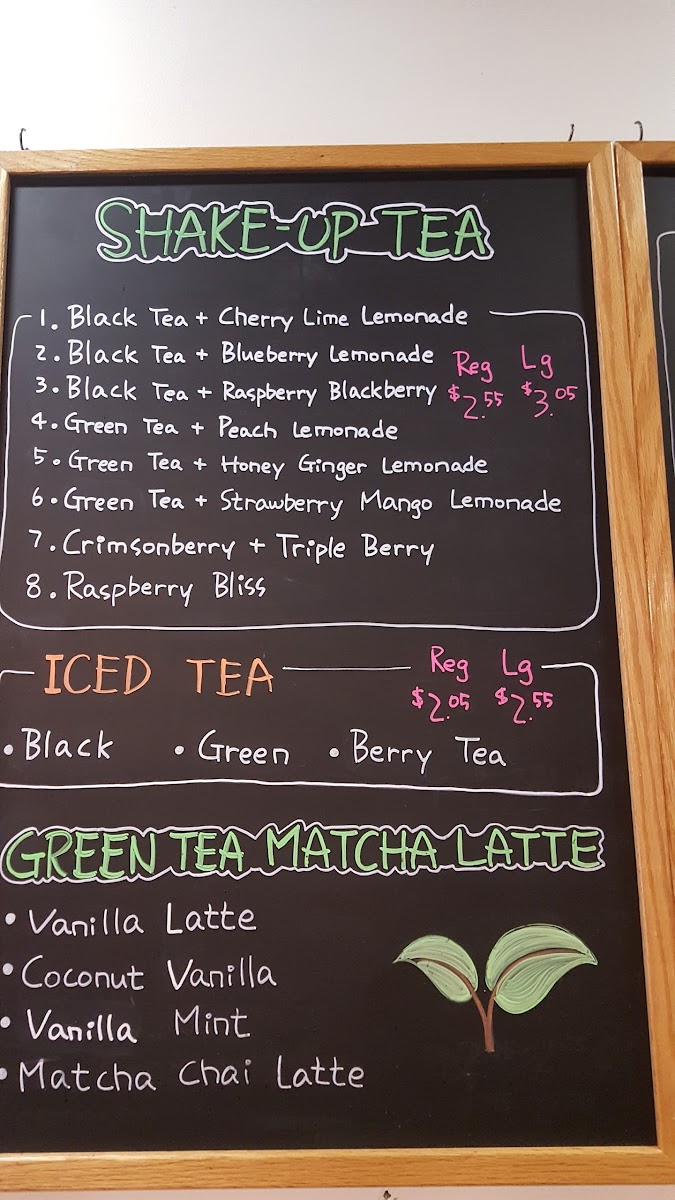 SHAKE-UP TEA
1. Black Tea + Cherry Lime Lemonade
2. Black Tea + Blueberry Lemonade Reg Lg
3. Black Tea + Raspberry Blackberry $2.55 $3.05
4. Green Tea + Peach Lemonade
5. Green Tea + Honey Ginger Lemonade
6. Green Tea + Strawberry Mango Lemonade
7. Crimsonberry + Triple Berry
8. Raspberry Bliss
ICED TEA Reg Lg
$2.05 $2.55
• Black • Green • Berry Tea
GREEN TEA MATCHA LATTE
• Vanilla Latte
• Coconut Vanilla
• Vanilla Mint
• Matcha Chai Latte